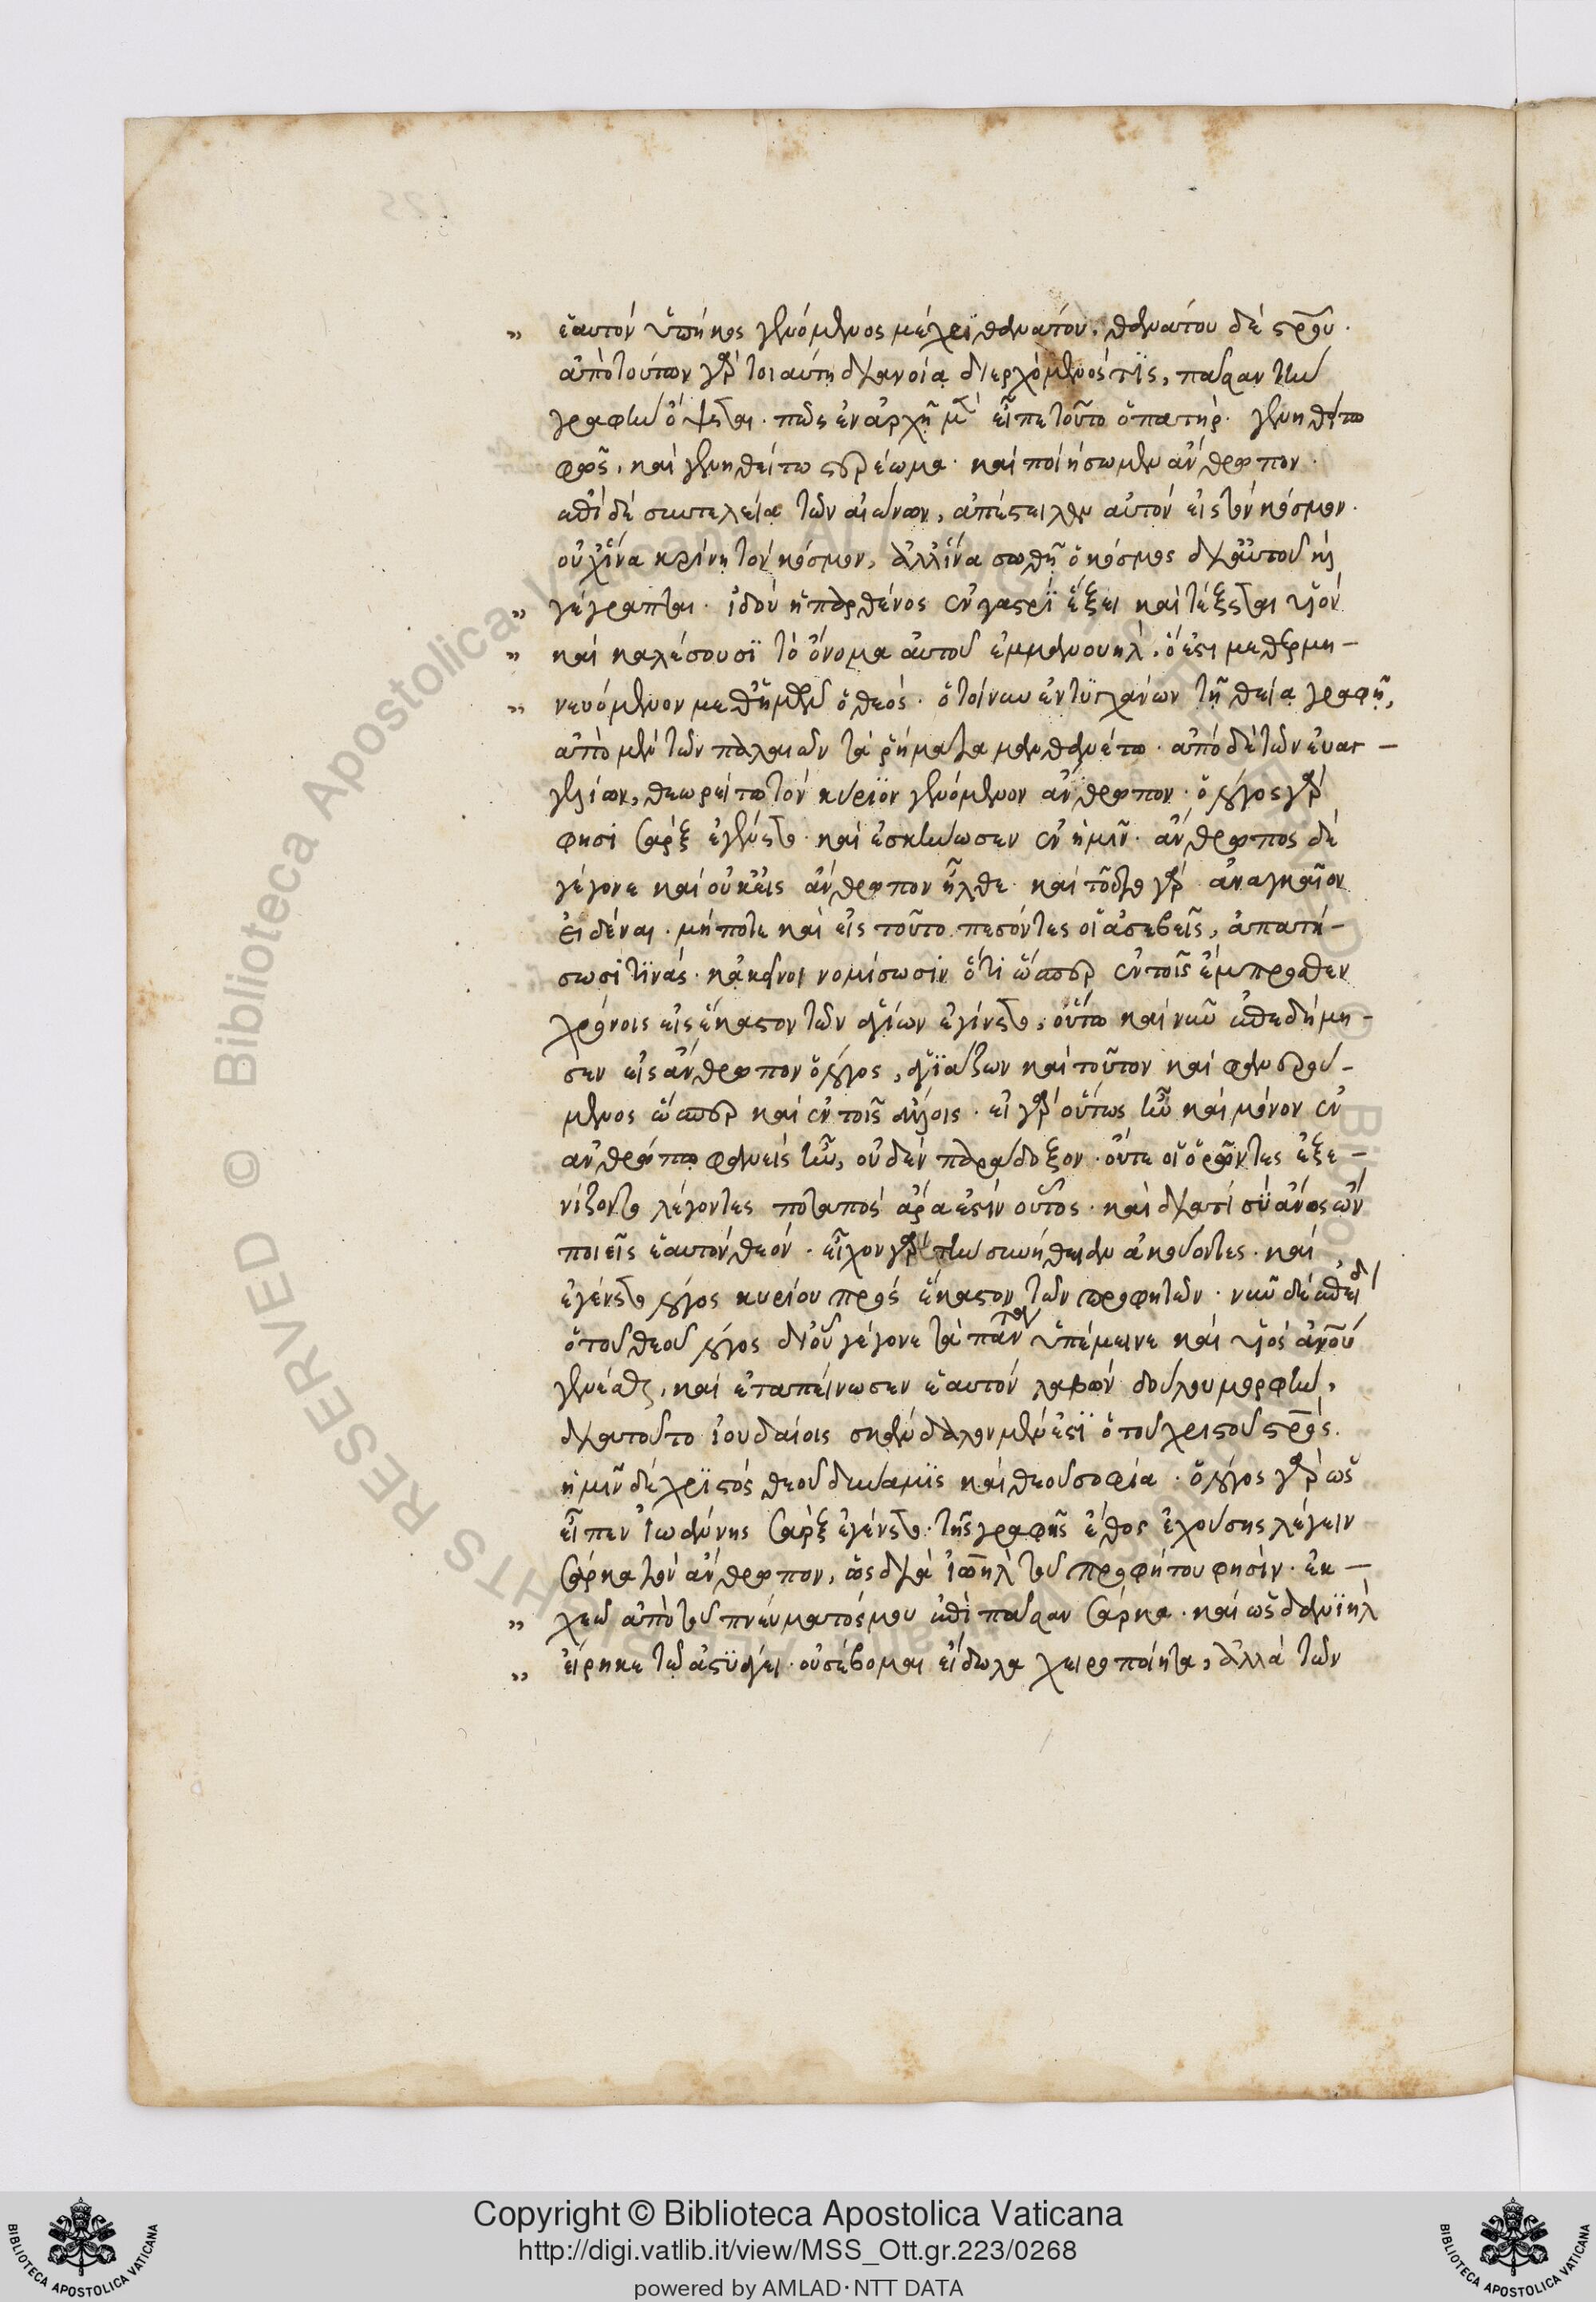 „ ἑαυτόν ὑπήκοος γενόμενος μέχρϊ θανάτου, θανάτου δέ σ̅ρ̅ου.
ἀπό τούτων γάρ τοιαύτη διανοία διερχόμενός τϊς, πᾶσαν τὴν
γραφὴν ὄψεται. πῶς ἐν ἀρχῇ μὲν εἶπε τοῦτο ὁ πατήρ. γενηθήτω
φῶς, καί γενηθείτω στερέωμα. καί ποιήσωμεν ἄνθρωπον.
ἐπί δέ συντελεία τῶν αἰώνων, ἀπέστειλεν αὐτόν εἰς τόν κόσμον.
οὐχ ἵνα κρίνη τόν κόσμον, ἀλλ' ἵνα σωθῇ ὁ κόσμος δι' αὐτοῦ καὶ
„ γέγραπται. ἰδού ἡ παρθένος ἐν γαστρϊ ἕξει καί τέξεται υἱόν
„ καί καλέσουσϊ τό ὄνομα αὐτοῦ ἐμμανουηλ. ὅ ἐστι μεθερμη-
„ νευόμενον μεθ' ἡμῶν ὁ θεός. ὁ τοίνυν ἐντϋγχανων τῇ θεία γραφῇ,
ἀπό μέν τῶν παλαιῶν τά ῥήματα μανθανέτω. ἀπό δέ τῶν εὐαγ-
γελίων, θεωρείτω τόν κυρϊον γενόμενον ἄνθρωπον. ὁ λόγος γάρ
φησι σάρξ ἐγένετο. καί ἐσκήνωσεν ἐν ἡμῖν. ἄνθρωπος δέ
γέγονε καί οὐκ εἰς ἄνθρωπον ἦλθε. καί τοῦτο γάρ ἀναγκαῖον
εἰδέναι. μήποτε καί εἰς τοῦτο πεσόντες οἱ ἀσεβεῖς, ἀπατή-
σωσι τϊνάς. κἀκεῖνοι νομίσωσιν ὅτι ὥσπερ ἐν τοῖς ἔμπροσθεν
χρόνοις εἰς ἕκαστον τῶν ἁγίων ἐγίνετο, οὕτω καί νῦν ἐπεδήμη-
σεν εἰς ἄνθρωπον ὁ λόγος, ἁγϊάζων καί τοῦτον καί φανερού-
μενος ὥσπερ καί ἐν τοῖς ἄλλοις. εἰ γάρ οὕτως ἦν καί μόνον ἐν
ἀνθρώπω φανείς ἦν, οὐδέν παράδοξον. οὔτε οἱ ὁρῶντες ἐξε-
νίζοντο λέγοντες ποταπός ἄρα ἐστίν οὗτος. καί διατί σϋ ἄνος ὤν
ποιεῖς ἑαυτόν θεόν. εἶχον γάρ τήν συνήθειαν ἀκούοντες. καί
ἐγένετο λόγος κυρίου πρός ἕκαστον τῶν προφητῶν. νῦν δέ ἐπειδ
ὁ τοῦ θεοῦ λόγος δι' οὗ γέγονε τά πάντα ὑπέμεινε καί υἱός ἀνου
γενέσθαι, καί ἐταπείνωσεν ἑαυτόν λαβών δούλου μορφήν,
διατοῦτο ἰουδαίοις σκάνδαλον μέν ἐστϊ ὁ τοῦ χριστοῦ σ̅ρ̅ος.
ἡμῖν δέ χρϊστός θεοῦ δυναμϊς καί θεοῦ σοφία. ὁ λόγος γάρ ὡς
εἶπεν ἰωάννης σάρξ ἐγένετο. τῆς γραφῆς ἔθος ἐχούσης λέγειν
σάρκα τόν ἄνθρωπον, ὡς διά ἰωηλ τοῦ προφήτου φησίν. ἐκ-
„ χεῶ ἀπό τοῦ πνεύματός μου ἐπί πᾶσαν σάρκα. καί ὡς δανϊήλ
„ εἴρηκε τῷ ἀστϋάγει. οὐ σέβομαι εἴδωλα χειροποίητα, ἀλλά τῶν